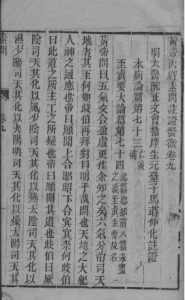 黃帝內經素問註證發微卷九
明太醫院正文會稽庠生元臺子馬蒔仲化註證
本病論篇第七十三亡
至真要大論篇第七十四
黃帝問曰五氣交合盈虛更作余知之矣六氣分治司天
地者其至何如岐伯再拜對曰明乎哉問也天地之大紀
人神之通應也帝曰願聞上合昭昭下合冥冥奈何岐伯
曰此道之所主工之所疑也帝曰願聞其道也岐伯曰厥
陰司天其化以風少陰司天其化以熱太陰司天其化以
濕少陽司天其化以火陽明司天其化以燥太陽司天其